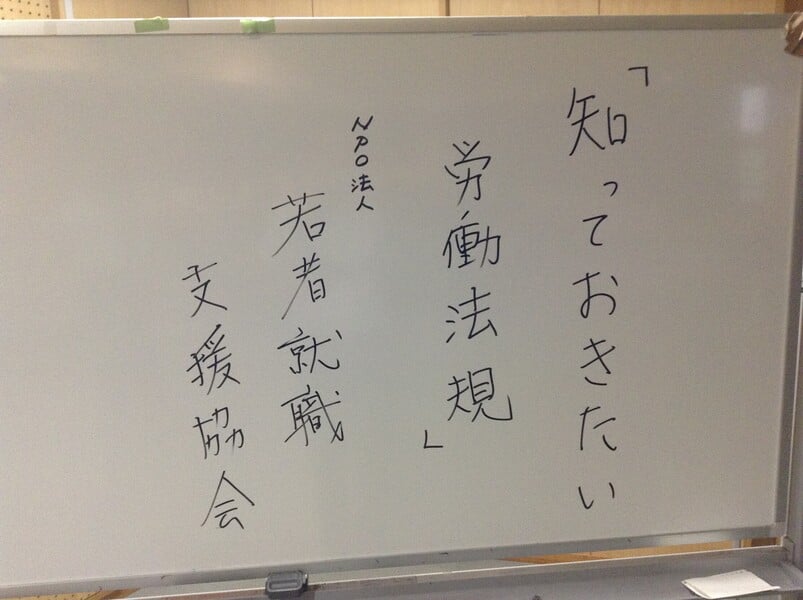 「知っておきたい
労働法規」
NPO法人
若者就職
支援協会